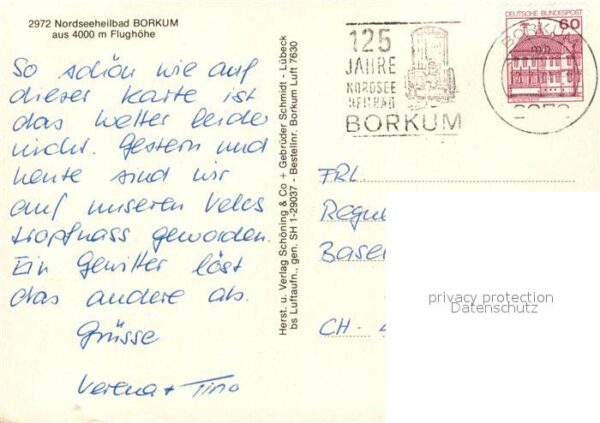 2972 Nordseeheilbad BORKUM
aus 4000 m Flughöhe
So schön wie auf
dieser Karte ist
das Wetter leider
nicht. Gestern und
heute sind wir
auf unseren Velos
tropfnass geworden.
Ein Gewitter löst
das andere ab.
Grüsse
Verena + Tino
Herst. u. Verlag Schöning & Co + Gebrüder Schmidt - Lübeck
bs Luftaufn., gen. SH 1-29037 - Bestellnr. Borkum Luft 7630
125
JAHRE
NORDSEE
HEILBAD
BORKUM
DEUTSCHE BUNDESPOST
60
BORKUM
FRL.
Regu
Basel
CH - 4
privacy protection
Datenschutz